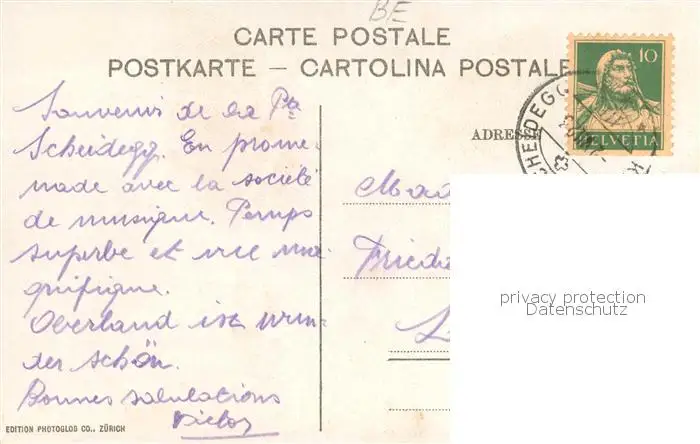 BE
CARTE POSTALE
POSTKARTE — CARTOLINA POSTALE
10
HELVETIA
SCHEIDEGG
ADRESSE
Souvenir de la Pte
Scheidegg. En prome-
nade avec la société
de musique. Temps
superbe et vue ma-
gnifique.
Oberland ist wun-
der schön.
Bonnes salutations
Victor
Friede
privacy protection
Datenschutz
EDITION PHOTOGLOB CO., ZÜRICH